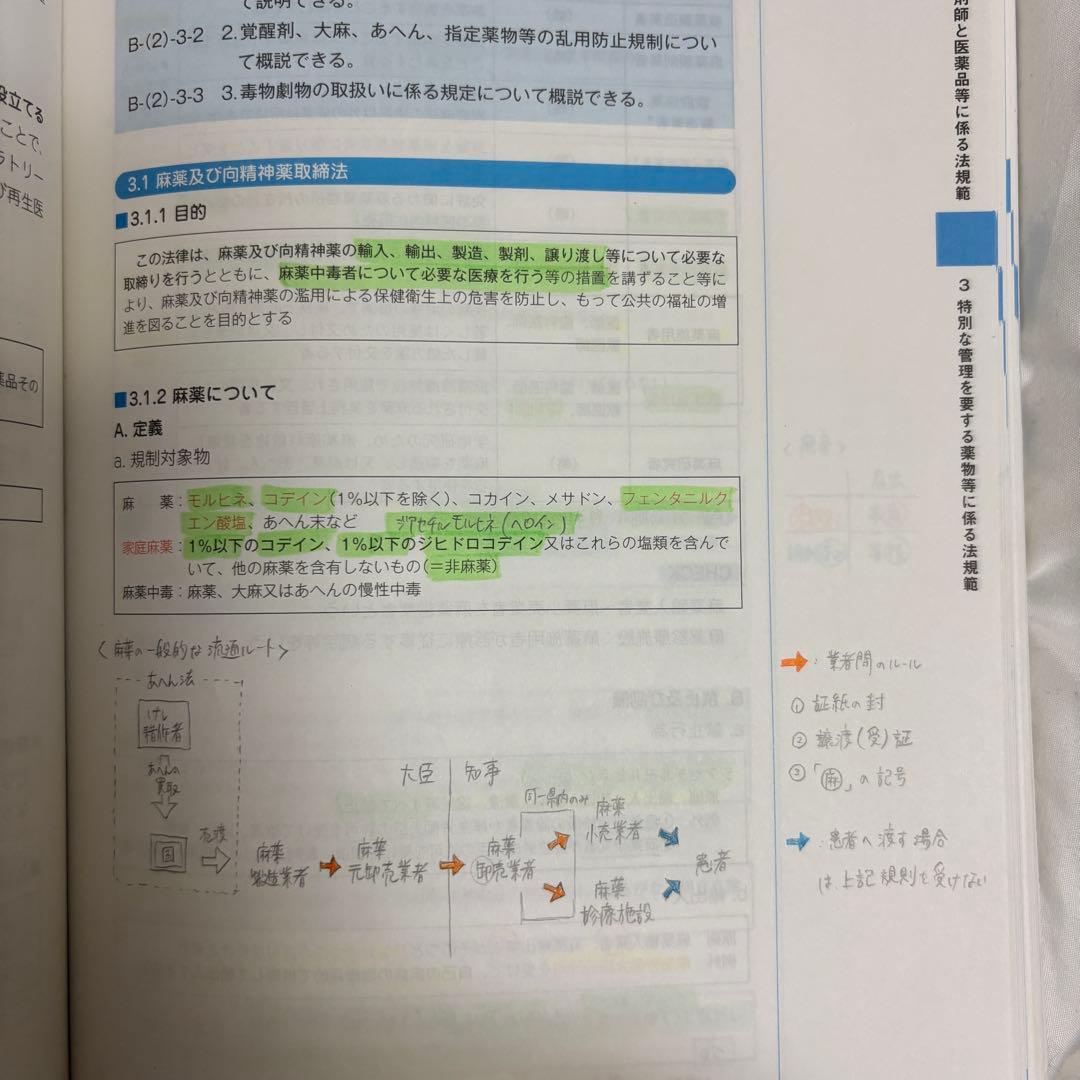 て説明できる。
B-(2)-3-2 2.覚醒剤、大麻、あへん、指定薬物等の乱用防止規制につい
て概説できる。
B-(2)-3-3 3.毒物劇物の取扱いに係る規定について概説できる。
3.1 麻薬及び向精神薬取締法
■3.1.1 目的
この法律は、麻薬及び向精神薬の輸入、輸出、製造、製剤、譲り渡し等について必要な
取締りを行うとともに、麻薬中毒者について必要な医療を行う等の措置を講ずること等に
より、麻薬及び向精神薬の濫用による保健衛生上の危害を防止し、もって公共の福祉の増
進を図ることを目的とする
■3.1.2 麻薬について
A. 定義
a. 規制対象物
麻　薬：モルヒネ、コデイン(1%以下を除く)、コカイン、メサドン、フェンタニルク
エン酸塩、あへん末など ジアセチルモルヒネ(ヘロイン)
家庭麻薬：1%以下のコデイン、1%以下のジヒドロコデイン又はこれらの塩類を含んで
いて、他の麻薬を含有しないもの(＝非麻薬)
麻薬中毒：麻薬、大麻又はあへんの慢性中毒
〈麻薬の一般的な流通ルート〉
あへん法
けし
耕作者
あへんの
買取
国
売渡
大臣
知事
麻薬
製造業者
麻薬
元卸売業者
麻薬
卸売業者
同一県内のみ
麻薬
小売業者
麻薬
診療施設
患者
：業者間のルール
① 証紙の封
② 譲渡(受)証
③「㊙麻」の記号
：患者へ渡す場合
は、上記規則を受けない
剤師と医薬品等に係る法規範
3 特別な管理を要する薬物等に係る法規範
役立てる
ことで、
ラトリー
び再生医
薬品その